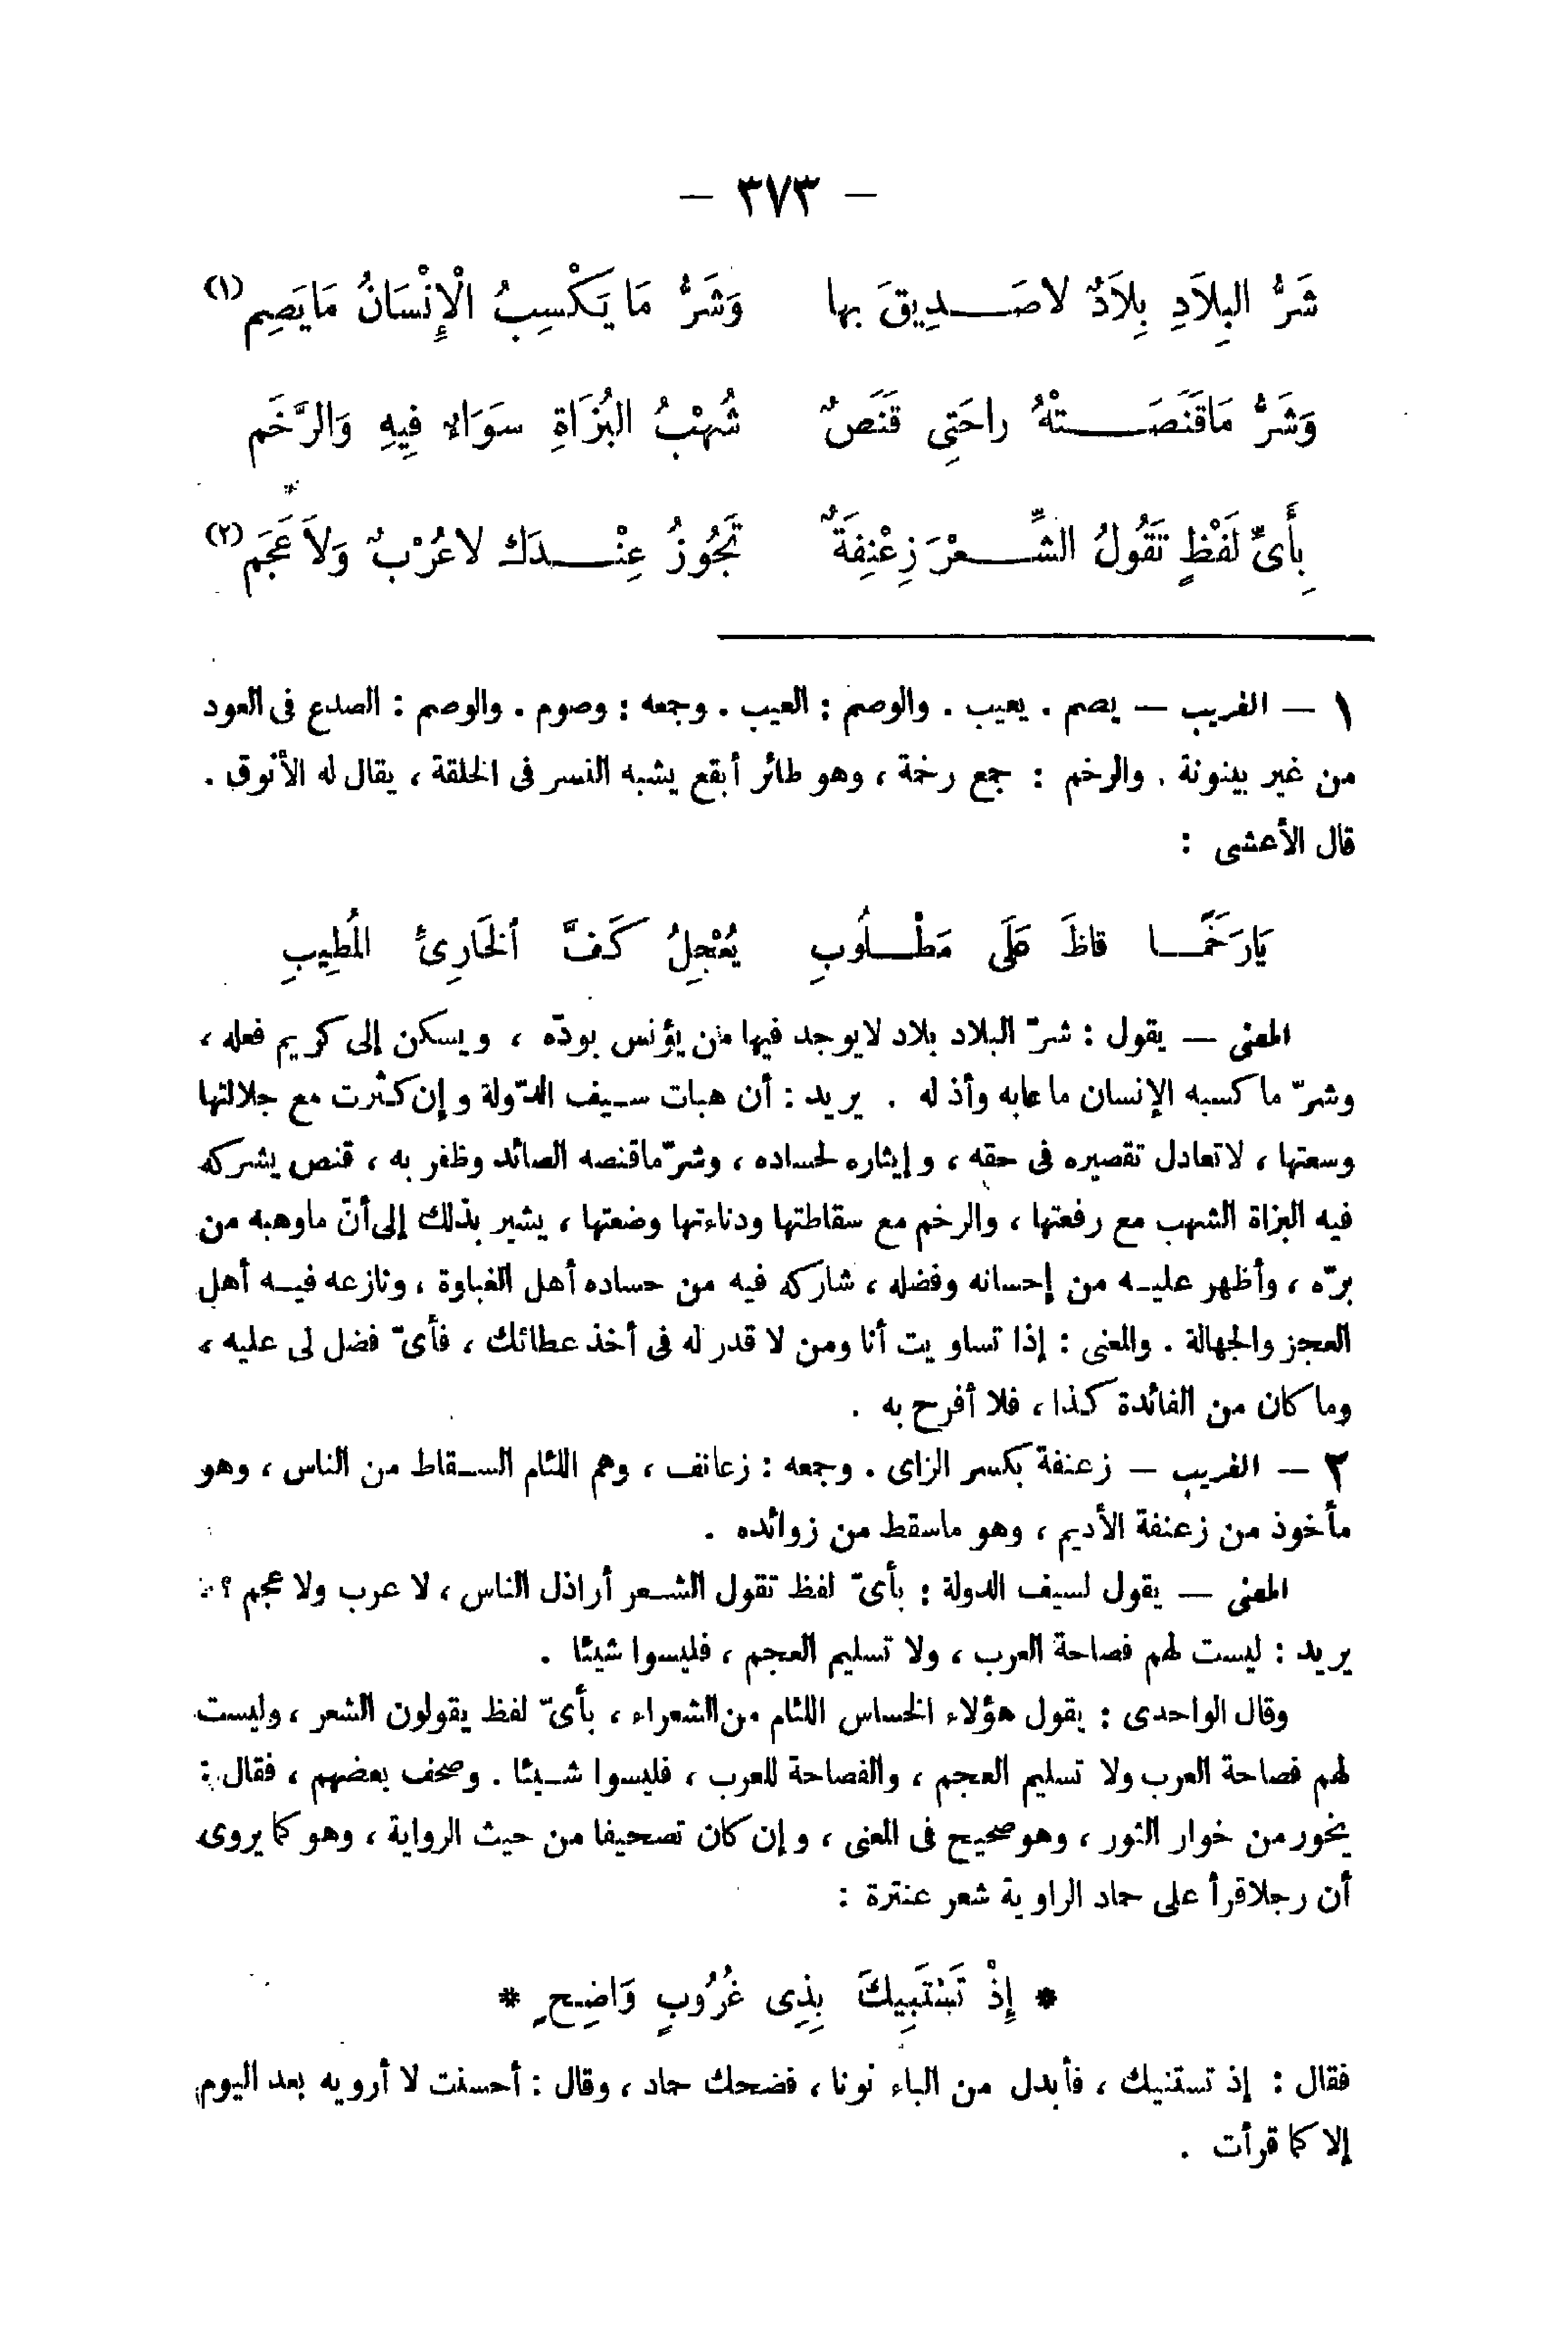 — ٣٧٣ —
شَرُّ البِلاَدِ بِلاَدٌ لاصَدِيقَ بها وَشَرُّ مَا يَكْسِبُ الْإِنْسَانُ مَايَصِم (١)
وَشَرُّ مَاقَنَصَتْهُ راحَتِى قَنَصٌ شُهْبُ البُزَاةِ سَوَاءٌ فِيهِ وَالرَّخَم
بِأَىِّ لَفْظٍ تَقُولُ الشِّعْرَ زِعْنِفَةٌ تَجُوزُ عِنْدَكَ لاعُرْبٌ وَلاَ عَجَم (٢)
١ — الغريب — يصم . يعيب . والوصم : العيب . وجمعه : وصوم . والوصم : الصدع فى العود
من غير بينونة . والرخم : جمع رخمة ، وهو طائر أبقع يشبه النسر فى الخلقة ، يقال له الأنوق .
قال الأعشى :
يَارَخَمًا قاظَ عَلَى مَطْلُوبِ يُعْجِلُ كَفَّ الخَارِئُ المُطِيبِ
المعنى — يقول : شرّ البلاد بلاد لايوجد فيها من يؤنس بودّه ، ويسكن إلى كريم فعله ،
وشرّ ما كسبه الإنسان ما عابه وأذله . يريد : أن هبات سيف الدّولة وإن كثرت مع جلالتها
وسعتها ، لاتعادل تقصيره فى حقه ، وإيثاره لحساده ، وشرّ ماقنصه الصائد وظفر به ، قنص يشركه
فيه البزاة الشهب مع رفعتها ، والرخم مع سقاطتها ودناءتها وضعتها ، يشير بذلك إلى أنّ ماوهبه من
برّه ، وأظهر عليه من إحسانه وفضله ، شاركه فيه من حساده أهل الغباوة ، ونازعه فيه أهل
العجز والجهالة . والمعنى : إذا تساويت أنا ومن لا قدر له فى أخذ عطائك ، فأىّ فضل لى عليه ،
وما كان من الفائدة كذا ، فلا أفرح به .
٢ — الغريب — زعنفة بكسر الزاى . وجمعه : زعانف ، وهم اللئام السقاط من الناس ، وهو
مأخوذ من زعنفة الأديم ، وهو ماسقط من زوائده .
المعنى — يقول لسيف الدولة : بأىّ لفظ تقول الشعر أراذل الناس ، لا عرب ولا عجم ؟
يريد : ليست لهم فصاحة العرب ، ولا تسليم العجم ، فليسوا شيئا .
وقال الواحدى : يقول هؤلاء الخساس اللئام من الشعراء ، بأىّ لفظ يقولون الشعر ، وليست
لهم فصاحة العرب ولا تسليم العجم ، والفصاحة للعرب ، فليسوا شيئا . وصحف بعضهم ، فقال :
يخور من خوار الثور ، وهو صحيح فى المعنى ، وإن كان تصحيفا من حيث الرواية ، وهو كما يروى
أن رجلا قرأ على حماد الراوية شعر عنترة :
* إِذْ تَسْتَبِيكَ بِذِى غُرُوبٍ وَاضِحٍ *
فقال : إذ تستنيك ، فأبدل من الباء نونا ، فضحك حماد ، وقال : أحسنت لا أرويه بعد اليوم
إلا كما قرأت .